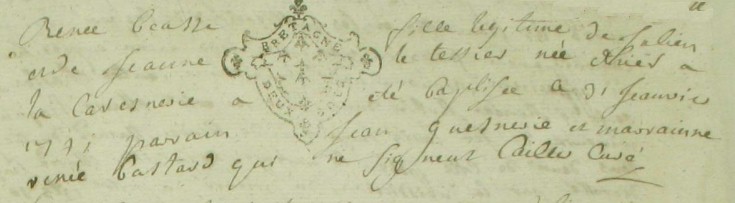 Renee Beasse fille legitime de Julien
et de Jeanne le tessier née hier a
la a été baptisée a 31 janvier
parain Jean guesnerie et marrainne
renée Bastard qui ne signent Cailler Curé
BRETAGNE